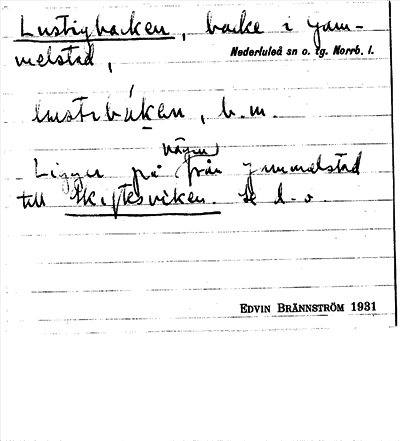 Lustigbacken, backe i Gam-
melstad,
Nederluleå sn o. tg. Norrb. l.
lustibákan, b. m.
vägen
Ligger på från Gammelstad
till Skiftesviken. se d. o.
EDVIN BRÄNNSTRÖM 1931